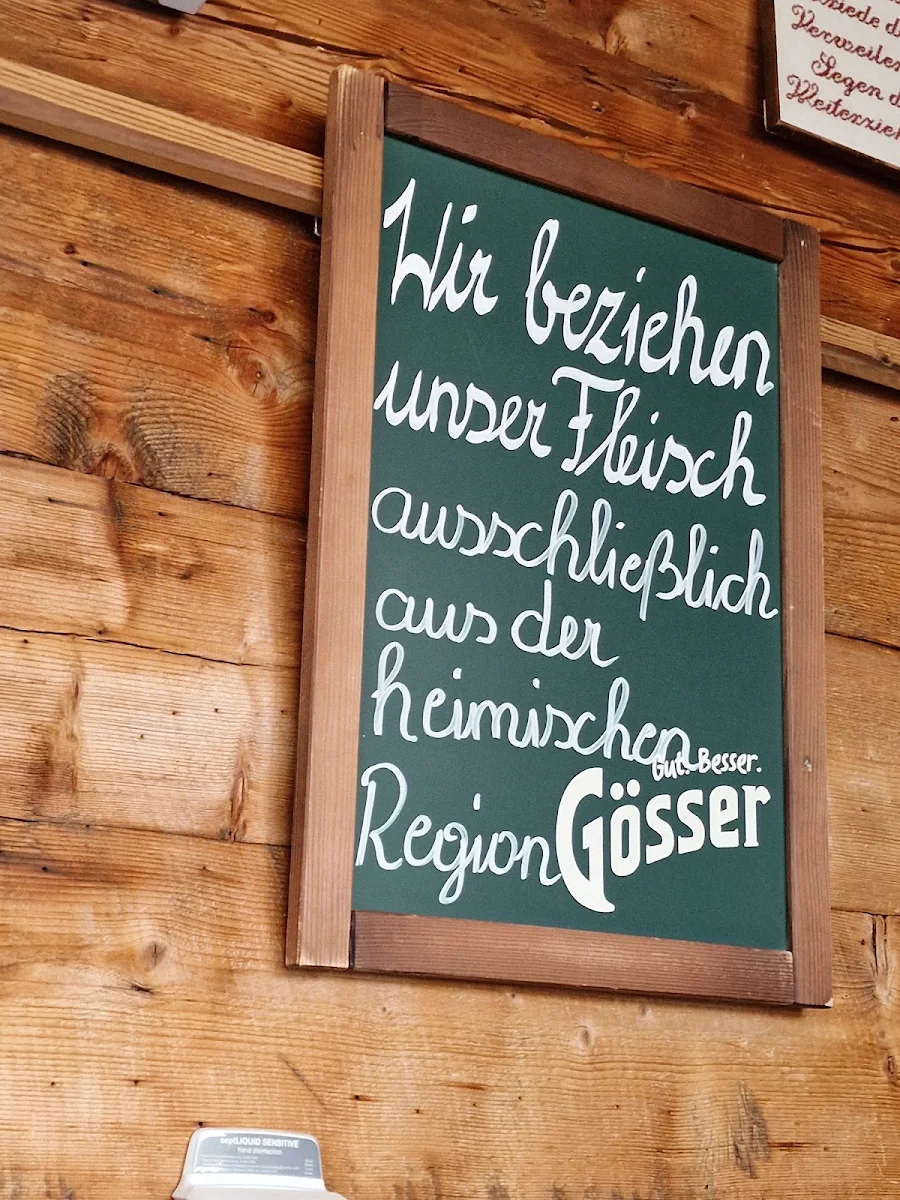 Wir beziehen
unser Fleisch
ausschließlich
aus der
heimischen
Region
Gut. Besser.
Gösser
Verweilen
Segen
septLIQUID SENSITIVE
hand disinfection